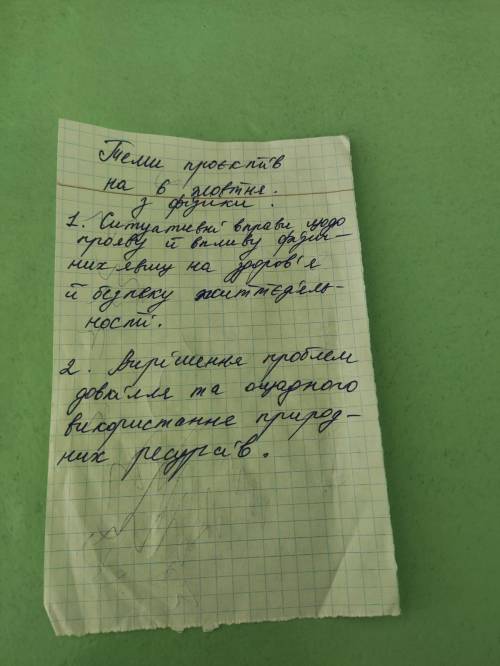 Теми проєктів
на 6 жовтня.
з фізики.
1. Ситуативні вправи щодо
прояву й впливу фізич-
них явищ на здоров'я
й безпеку життєдіяль-
ності.
2. Вирішення проблем
довкілля та ощадного
використання природ-
них ресурсів.